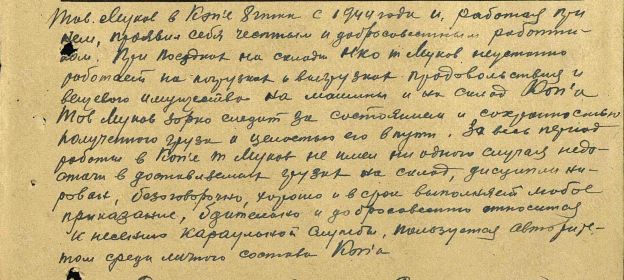 Тов. Муков в Коп'е 8 гтк с 1944 года и, работая при
нем, проявил себя честным и добросовестным работни-
ком. При поездках на склады НКО т. Муков неустанно
работает на погрузках и выгрузках продовольствия и
вещевого имущества на машины и на склад Коп'а
Тов Муков зорко следит за состоянием и сохранностью
полученного груза и целостью его в пути. За весь период
работы в Коп'е т Муков не имел ни одного случая недо-
стачи в доставляемых грузах на склад, дисциплини-
рован, безоговорочно, хорошо и в срок выполняет любое
приказание, бдительно и добросовестно относится
к несению караульной службы, пользуется авторите-
том среди личного состава Коп'а